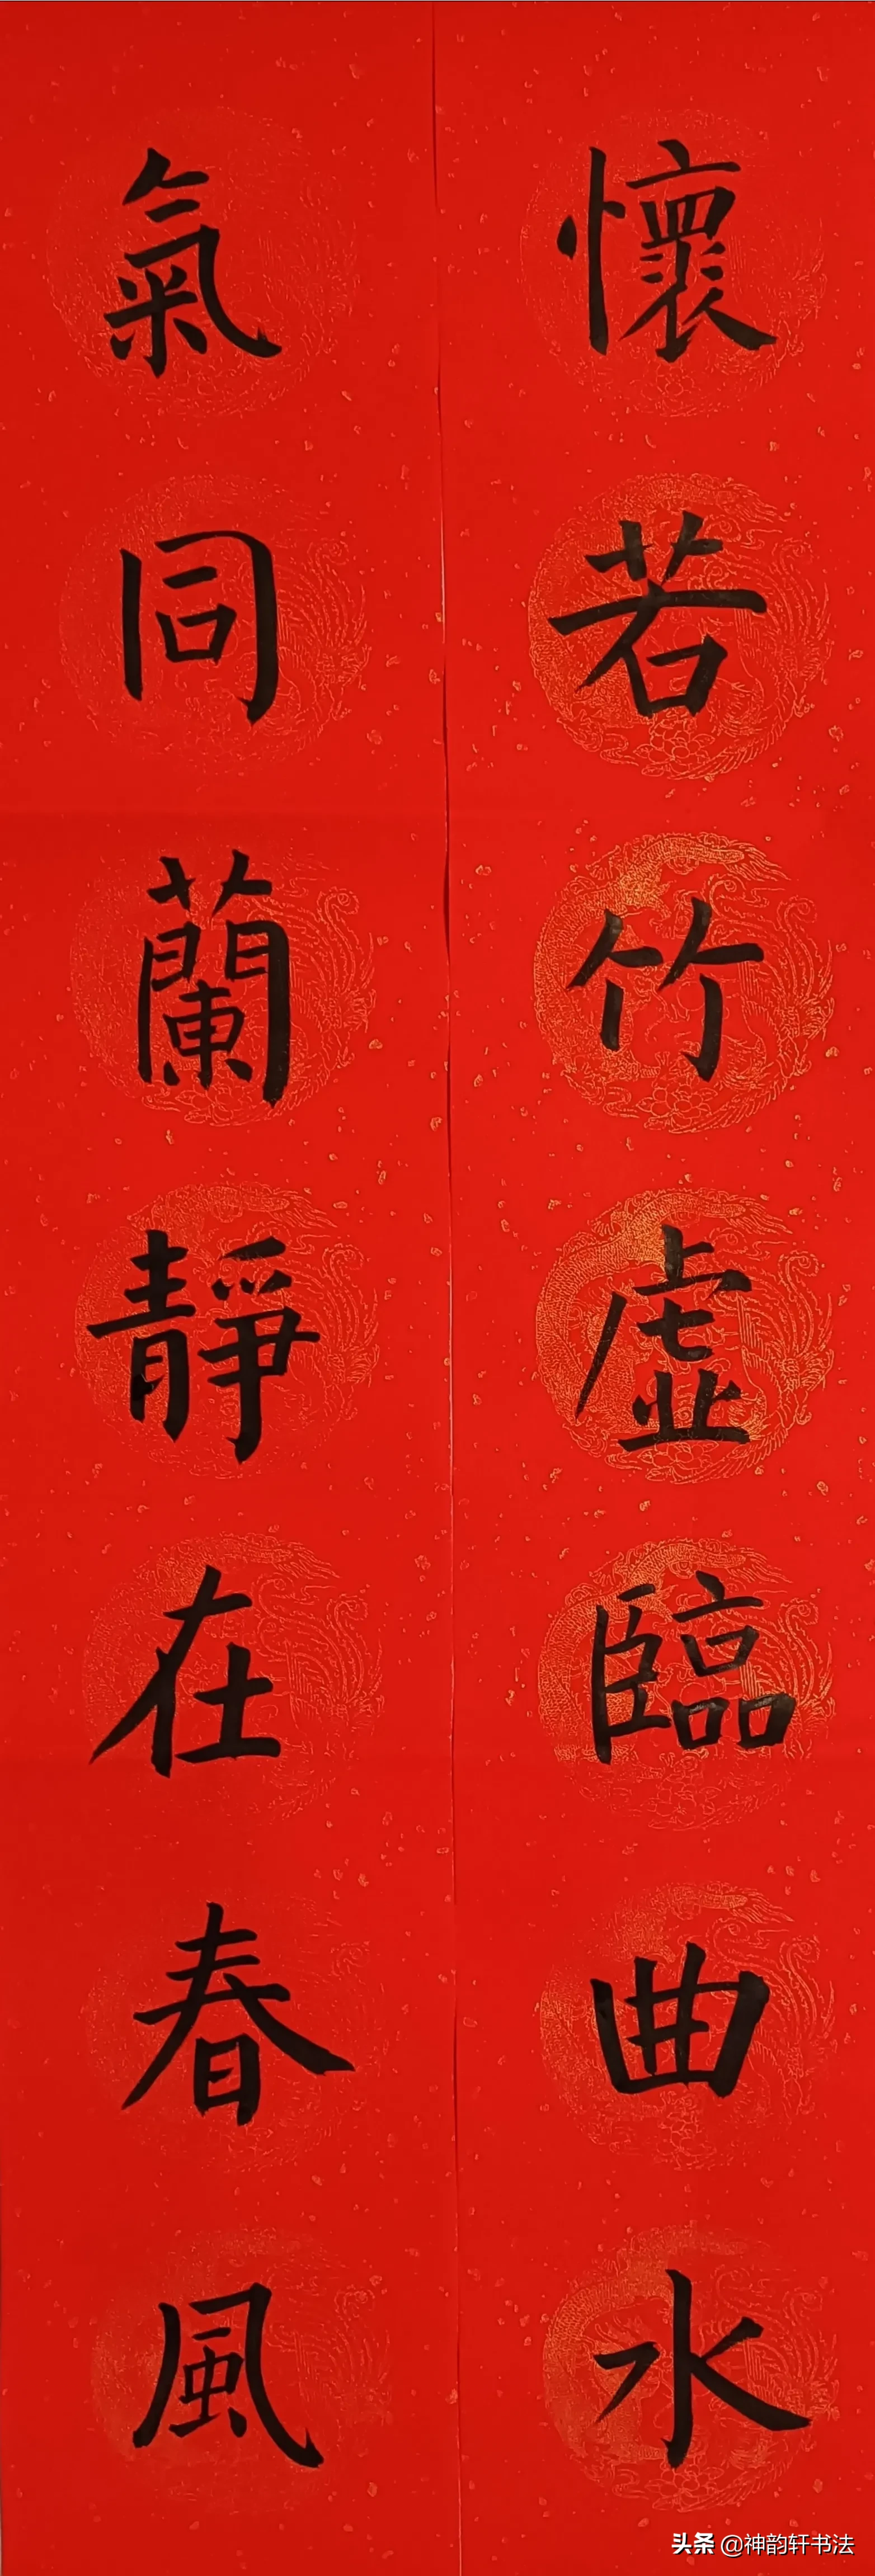 懷若竹虛臨曲水
氣同蘭靜在春風
头条 @神韵轩书法